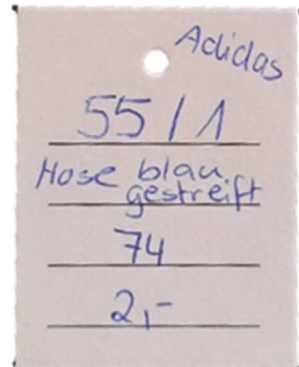 Adidas
55/1
Hose blau
gestreift
74
2,-